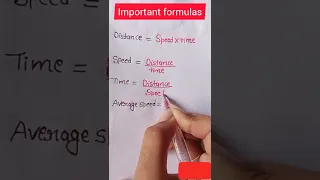 Important formulas
Distance = Speed x time
Speed = Distance
Time
Time = Distance
Spee
Average speed =
Average s